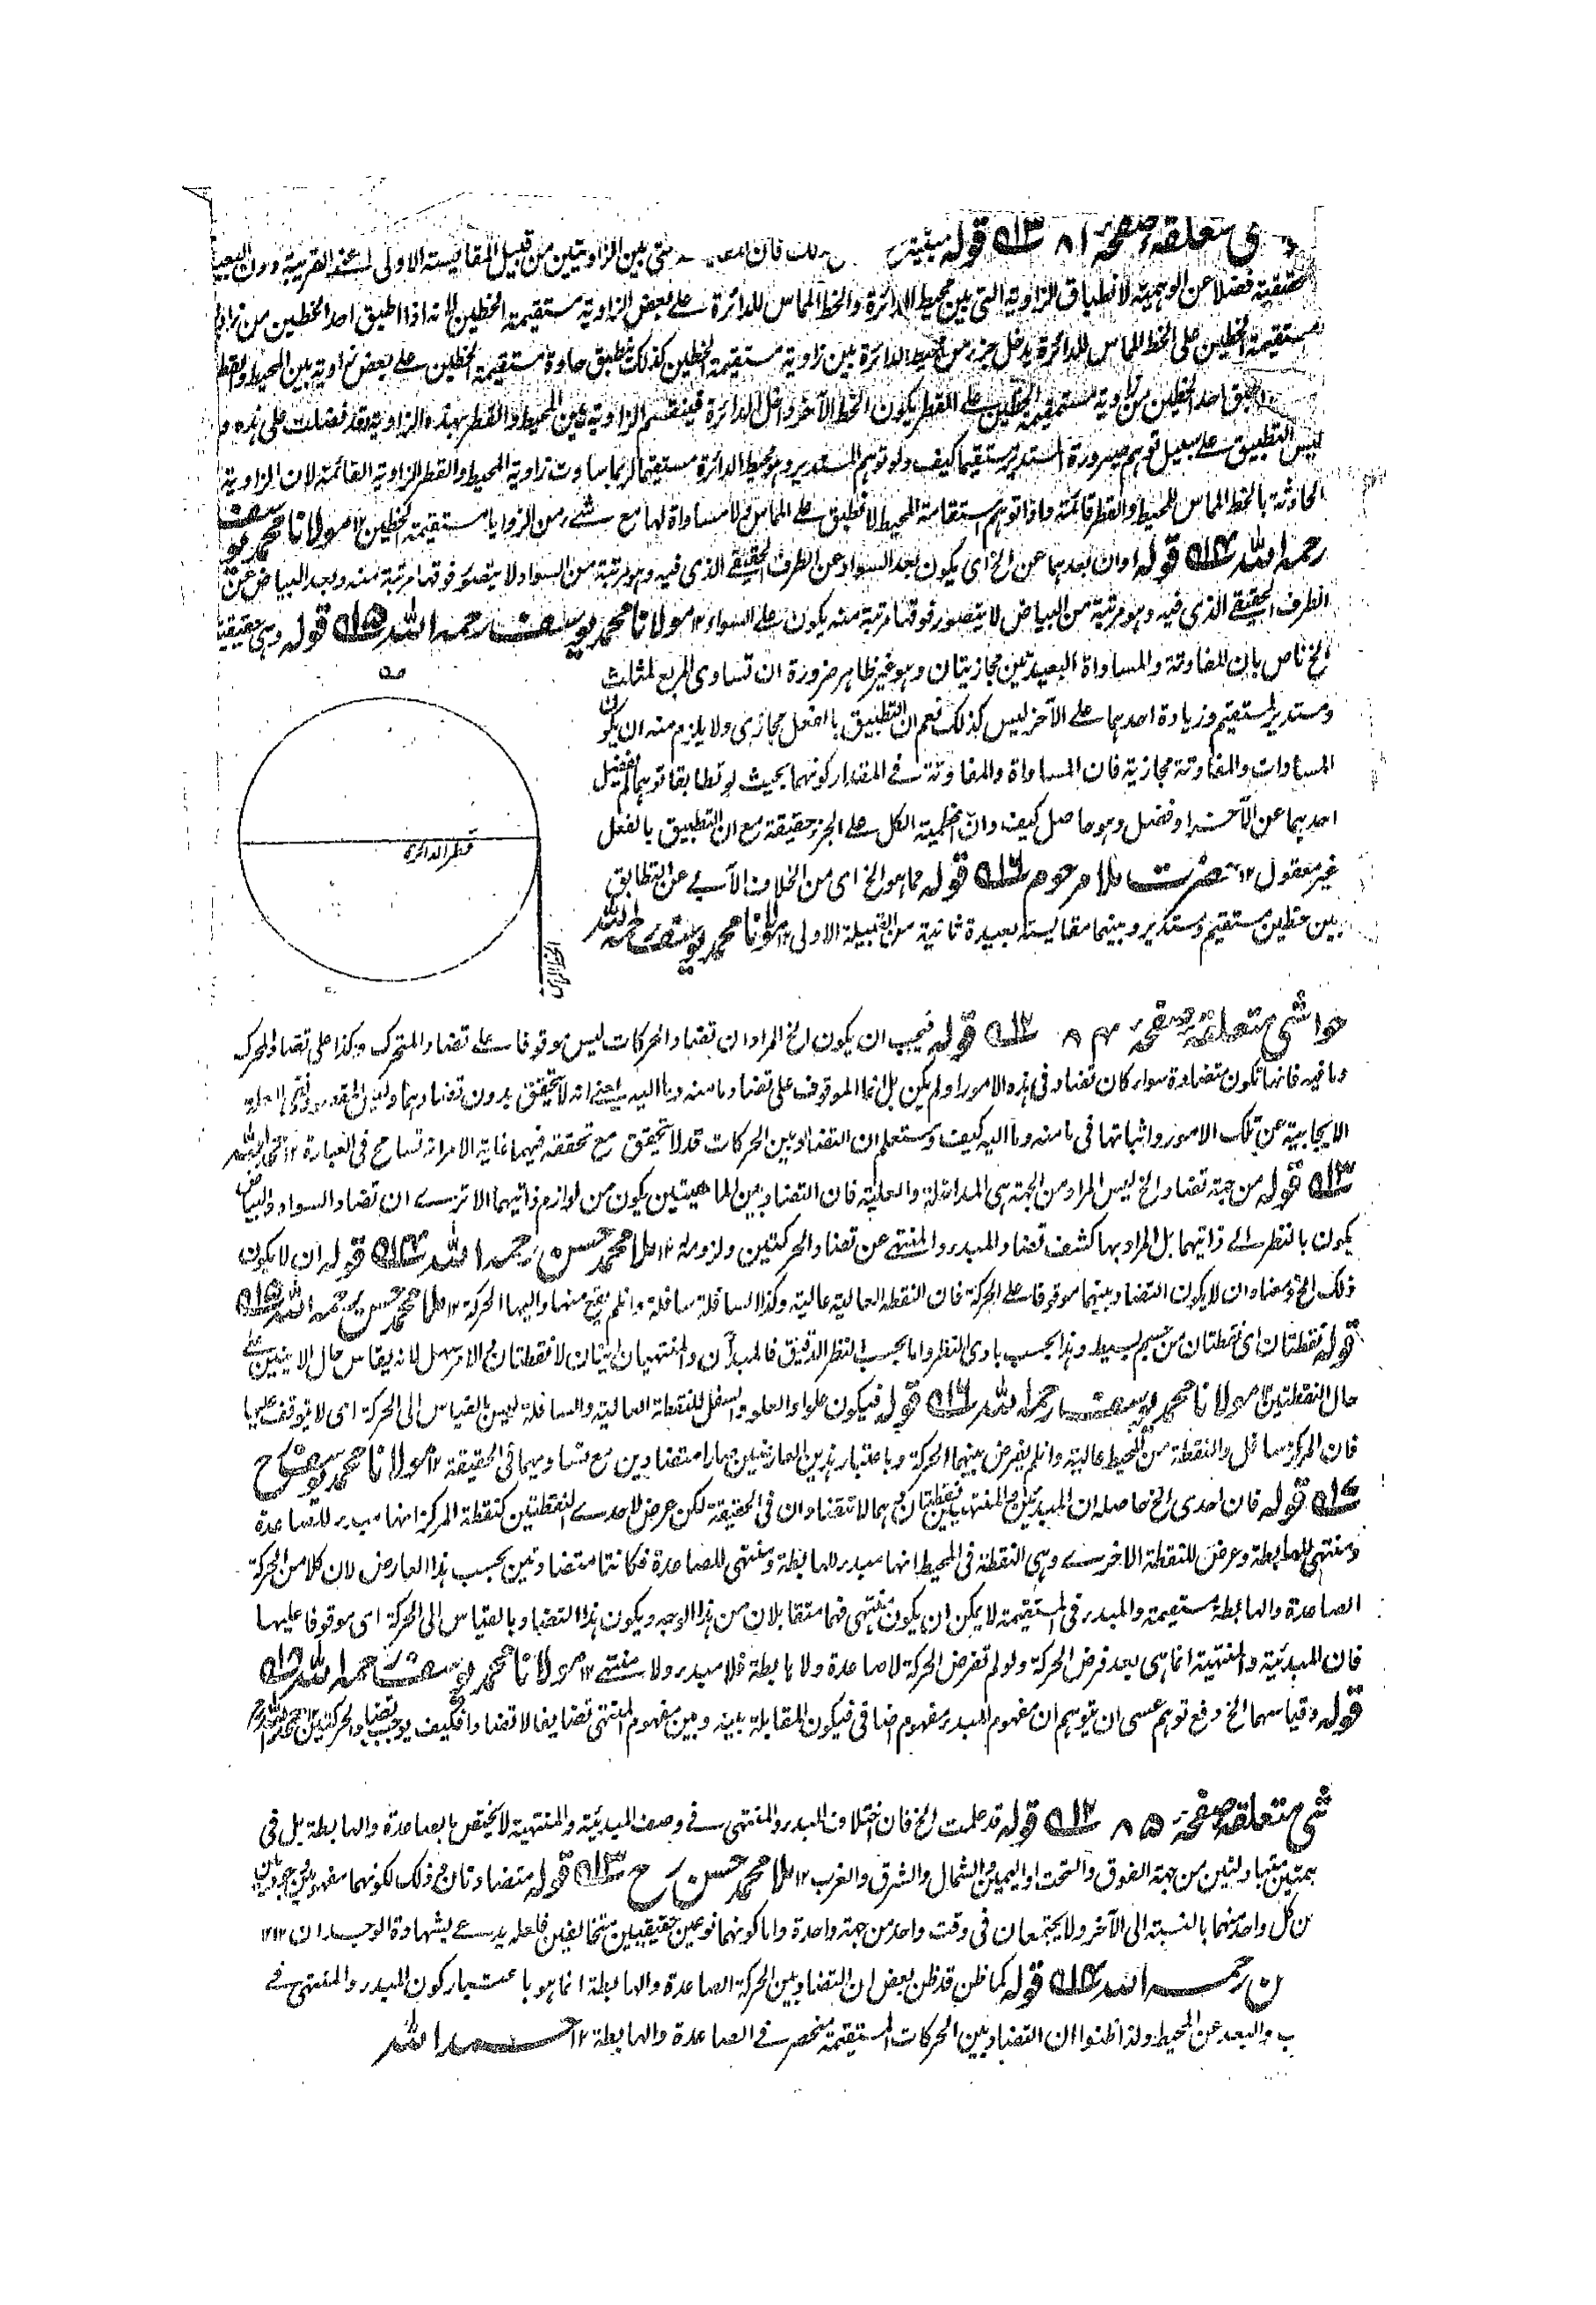 متعلقه صفحه ٨١ قوله
حقيقية فضلا عن الوهمية لانطباق الزاوية التى بين محيط الدائرة والخط المماس للدائرة على بعض الزاوية مستقيمة الخطين لانه اذا اطبق احد الخطين من
مستقيمة الخطين على الخط المماس للدائرة يدخل جزء من محيط الدائرة بين زاوية مستقيمة الخطين كذلك تطبيق على بعض زاوية بين المحيط والقطر
احد الخطين من زاوية مستقيمة الخطين على القطر يكون الخط الآخر داخل الدائرة فينقسم الزاوية بين المحيط والقطر بهذه الزاوية فقد فضلت على هذه و
ليس التطبيق على سبيل توهم صيرورة المستدير مستقيما كيف ولو توهم المستدير وهو محيط الدائرة مستقيما لربما ساوت زاوية المحيط والقطر الزاوية القائمة لان الزاوية
الحادثة بالخط المماس للمحيط والقطر قائمة واذا توهم استقامة المحيط لانطبق على المماس فلا مساواة لها مع شىء من الزوايا مستقيمة الخطين ١٢ مولانا محمد يوسف
رحمه الله قوله اوان بعدهما عن الخ اى يكون بعد السواد عن الطرف الحقيقى الذى فيه وهو مرتبة من السواد لا يتصور فوقها مرتبة منه وبعد البياض عن
الطرف الحقيقى الذى فيه وهو مرتبة من البياض لا يتصور فوقها مرتبة منه يكون على السواء ١٢ مولانا محمد يوسف رحمه الله قوله وهى حقيقية
الخ ناص بان المفاوتة والمساواة البعيدتين مجازيتان وهو غير ظاهر ضرورة ان تساوى المربع لمثلث
ومستدير لمستقيم وزيادة احدهما على الآخر ليس كذلك نعم ان التطبيق بالفعل مجازى ولا يلزم منه ان يكون
المساوات والمفاوتة مجازية فان المساواة والمفاوتة فى المقدار كونهما بحيث لو تطابقا توهما لم يفضل
احدهما عن الآخر او فضل وهو حاصل كيف وان اعظمية الكل على الجزء حقيقة مع ان التطبيق بالفعل
غير معقول ١٢ حضرت ملا مرحوم قوله مما هو الخ اى من الخلاف الآبى عن التطابق
بين خطين مستقيم ومستدير وبينهما مقايسة بعيدة ثانية من القبيلة الاولى ١٢ مولانا محمد يوسف رحمه الله
قطر الدائرة
حواشى متعلقه صفحه ٨٤ قوله فيجب ان يكون الخ المراد ان تضاد الحركات ليس موقوفا على تضاد المتحرك وكذا على تضاد المحرك
وما فيه فانها تكون متضادة سواء كان تضاد فى هذه الامور او لم يكن بل انما الموقوف على تضاد ما منه وما اليه يعنى انه لا يتحقق بدون تضادهما وليس المقصود نفى العلة
الايجابية عن تلك الامور واثباتها فى ما منه وما اليه كيف وستعلم ان التضاد بين الحركات قد لا يتحقق مع تحققه فيهما غاية الامر انه تسامح فى العبارة ١٢
قوله من جهة تضاد الخ ليس المراد من الجهة هى المداخلة والعلية فان التضاد بين الماهيتين يكون من لوازم ذاتيهما الا ترى ان تضاد السواد والبياض
يكون بالنظر الى ذاتيهما بل المراد بها كشف تضاد المبدء والمنتهى عن تضاد الحركتين ولزومه ١٢ ملا محمد حسن رحمه الله قوله ان لا يكون
ذلك الخ معناه ان لا يكون التضاد بينهما موقوفا على الحركة فان النقطة العالية عالية وكذا السافلة سافلة وان لم يقع منها واليها الحركة ١٢ ملا محمد حسن رحمه الله
قوله نقطتان اى نقطتان من جسم بسيط وهذا بحسب بادى النظر واما بحسب النظر الدقيق فالمبدآن والمنتهيان اينان لا نقطتان والامر سهل لانه يقاس حال الاينين على
حال النقطتين ١٢ مولانا محمد يوسف رحمه الله قوله فيكون علوا والعلو والسفل للنقطة العالية والسافلة ليس بالقياس الى الحركة اى لا يتوقف عليها
فان المركز سافل والنقطة من المحيط عالية وان لم يفرض بينهما الحركة وباعتبار هذين العارضين صارا متضادين مع تساويهما فى الحقيقة ١٢ مولانا محمد يوسف رح
قوله فان احدى الخ حاصله ان المبدئين والمنتهيين نقطتان وهما لا تتضادان فى الحقيقة لكن عرض لاحدى النقطتين كنقطة المركز انها مبدء للصاعدة
ومنتهى للهابطة وعرض للنقطة الاخرى وهى النقطة فى المحيط انها مبدء للهابطة ومنتهى للصاعدة فكانتا متضادتين بحسب هذا العارض لان كلا من الحركة
الصاعدة والهابطة مستقيمة والمبدء فى المستقيمة لا يمكن ان يكون منتهى فهما متقابلان من هذا الوجه ويكون هذا التضاد بالقياس الى الحركة اى موقوفا عليها
فان المبدئية والمنتهية انما هى بعد فرض الحركة ولو لم تفرض الحركة لا صاعدة ولا هابطة فلا مبدء ولا منتهى ١٢ مولانا محمد يوسف رحمه الله
قوله وقياسهما الخ دفع توهم عسى ان يتوهم ان مفهوم المبدء مفهوم اضافى فيكون المقابلة بينه وبين مفهوم المنتهى تضايفا لا تضادا فكيف يوجب تضاد الحركتين ١٢
شى متعلقه صفحه ٨٥ قوله قد علمت الخ فان اختلاف المبدء والمنتهى فى وصف المبدئية والمنتهية لا يختص بالصاعدة والهابطة بل فى
متبادلتين من جهة الفوق والتحت او اليمين والشمال والشرق والغرب ١٢ ملا محمد حسن رح قوله متضادتان وذلك لكونهما مفهومين وجوديين
ن كل واحد منهما بالنسبة الى الآخر ولا يجتمعان فى وقت واحد من جهة واحدة واما كونهما نوعين حقيقيين متخالفين فلعله يدعى بشهادة الوجدان ١٢
ن رحمه الله قوله كما ظن قد ظن بعض ان التضاد بين الحركة الصاعدة والهابطة انما هو باعتبار كون المبدء والمنتهى فى
ب والبعد عن المحيط ولذا ظنوا ان التضاد بين الحركات المستقيمة منحصر فى الصاعدة والهابطة ١٢ احمد الله